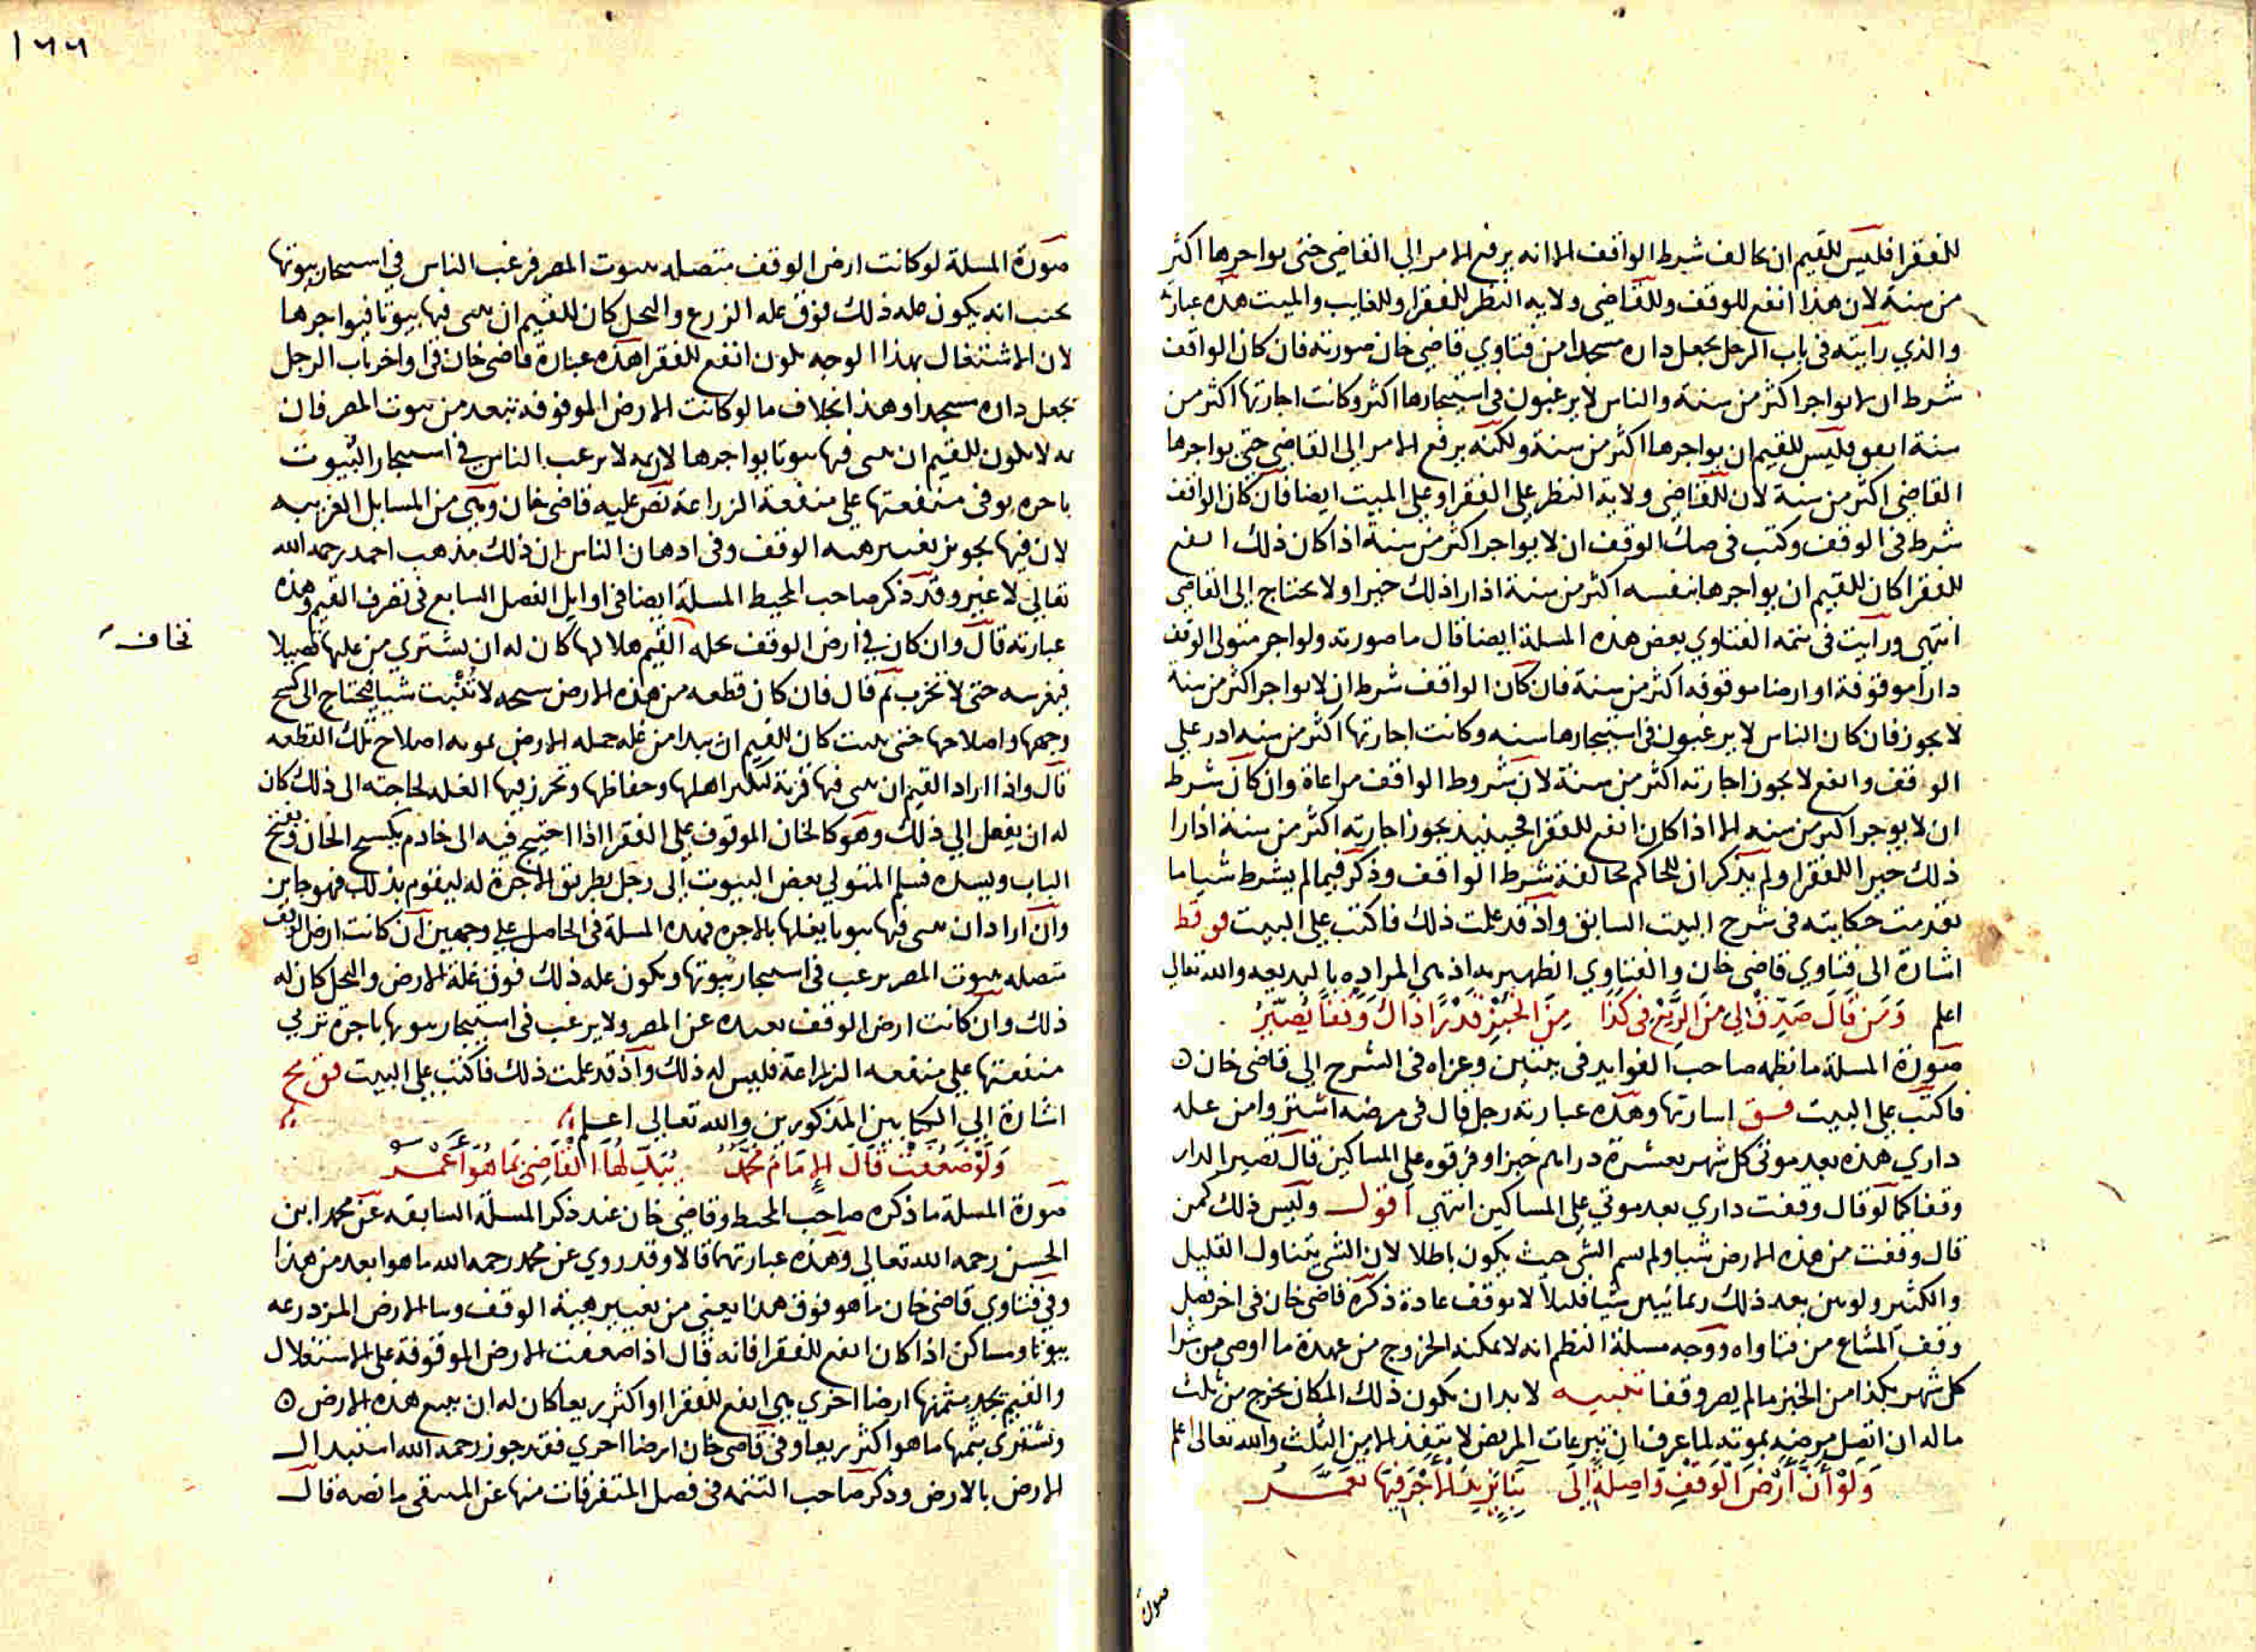 للفقرا فليس للقيم ان يخالف شرط الواقف الا انه يرفع الامر الي القاضي حتى يواجرها اكثر
من سنة لان هذا انفع للوقف وللقاضي ولاية النظر للفقرا وللغايب والميت هذه عبارته
والذي رايته في باب الرجل يجعل داره مسجدا من فتاوي قاضي خان صورته فان كان الواقف
شرط ان لا يواجر اكثر من سنة والناس لا يرغبون في استيجارها اكثر وكانت اجارتها اكثر من
سنة انفع فليس للقيم ان يواجرها اكثر من سنة ولكنه يرفع الامر الى القاضي حتى يواجرها
القاضي اكثر من سنة لان للقاضي ولاية النظر على الفقرا وعلي الميت ايضا فان كان الواقف
شرط في الوقف وكتب في صك الوقف ان لا يواجر اكثر من سنة اذا كان ذلك انفع
للفقرا كان للقيم ان يواجرها بنفسه اكثر من سنة اذا راذلك خيرا ولا يحتاج الى القاضي
انتهي ورايت في تتمه الفتاوي بعض هذه المسلة ايضا قال ما صورته ولو اجر متولى الوقف
دارا موقوفة او ارضا موقوفه اكثر من سنة فان كان الواقف شرط ان لا يواجر اكثر من سنة
لا يجوز فان كان الناس لا يرغبون في استيجارها سنه وكانت اجارتها اكثر من سنه ادر علي
الوقف وانفع لا يجوز اجارته اكثر من سنة لان شروط الواقف مراعاة وان كان شرط
ان لا يوجر اكثر من سنه الا اذا كان انفع للفقرا فحينيذ يجوز اجارته اكثر من سنة اذا را
ذلك خيرا للفقرا ولم يذكر ان للحاكم مخالفة شرط الواقف وذكر فيما لم يشرط شيا ما
تقدمت حكايته في شرح البيت السابق واذ قد علمت ذلك فاكتب علي البيت فو قط
اشارة الى فتاوي قاضي خان والفتاوي الظهيريه اذ هي المراده بالبد بعد والله تعالى
اعلم وَمَن قَالَ صَدِّقْ لِي مِنَ الرَّيْعِ فِى كَذَا مِنَ الخُبْزِ قَدْرًا ذَاكَ وَقْفًا يُصَيَّرُ
صورة المسلة ما نظمه صاحب الفوايد في بيتين وعزاه في الشرح الي قاضي خان ه
فاكتب علي البيت فسق اشارتها وهذه عبارته رجل قال في مرضه اشتروا من غله
داري هذه بعد موتى كل شهر بعشرة دراهم خبزا وفرقوه علي المساكين قال تصير الدار
وقفا كما لو قال وقفت داري بعد موتي علي المساكين انتهي اقول وليس ذلك كمن
قال وقفت من هذه الارض شيا ولم يسم الشي حيث يكون باطلا لان الشي يتناول القليل
والكثير ولو بين بعد ذلك ربما يبين شيا قليلا لا يوقف عادة ذكره قاضي خان في اخر فصل
وقف المشاع من فتاواه ووجه مسلة النظم انه لا يمكنه الخروج من عهدة ما اوصى من شرا
كل شهر بكذا من الخبز ما لم يصر وقفا تنبيه لا بد ان يكون ذلك المكان يخرج من ثلث
ماله ان اتصل مرضه بموته لما عرف ان تبرعات المريض لا تنفذ الا من الثلث والله تعالى اعلم
وَلَوْ أَنَّ أَرْضَ الْوَقْفِ وَاصِلَةٌ اِلَى بِنَا يَزِيدُ الأَجْرُ فِيهَا تُعَمَّرُ
صورة
١٦٦
صورة المسلة لو كانت ارض الوقف متصله ببيوت المصر فرغب الناس في استيجار بيوتها
بحيث انه يكون غله ذلك فوق غله الزرع والنخل كان للقيم ان يبني فيها بيوتا فيواجرها
لان الاشتغال بهذا الوجه يكون انفع للفقرا هذه عبارة قاضي خان في اواخر باب الرجل
يجعل داره مسجدا وهذا بخلاف ما لو كانت الارض الموقوفه تبعد من بيوت المصر فان
به لا يكون للقيم ان يبني فيها بيوتا يواجرها لانه لا يرغب الناس في استيجار البيوت
باجره يوفي منفعتها علي منفعة الزراعة نص عليه قاضي خان وهي من المسايل الغريبه
لان فيها تجويز تغيير هيه الوقف وفي اذهان الناس ان ذلك مذهب احمد رحمه الله
تعالي لا غير وقد ذكر صاحب المحيط المسلة ايضا في اوايل الفصل السابع في تصرف القيم وهذه
عبارته قال وان كان في ارض الوقف نخله القيم هلاكها كان له ان يشتري من غلها فصيلا
نخاف
فيغرسه حتى لا تخرب ثم قال فان كان قطعه من هذه الارض سبخه لا تُنْبت شيا فيحتاج الى كسح
وجهها واصلاحها حتى ينبت كان للقيم ان يبدا من غله جمله الارض بمونه اصلاح تلك القطعه
قال واذا اراد القيم ان يبني فيها قرية ليكثر اهلها وحفاظها وتحرز فيها الغله لحاجته الى ذلك كان
له ان يفعل الي ذلك وهو كالخان الموقوف علي الفقرا اذا احتيج فيه الى خادم يكسح الخان ويفتح
الباب ويسده فسلم المتولي بعض البيوت الي رجل بطريق الاجرة له ليقوم بذلك فهو جايز
وان اراد ان يبني فيها بيوتا يغلها بالاجره فهذه المسلة في الحاصل علي وجهين ان كانت ارض الوقف
متصله ببيوت المصر يرغب في استيجار بيوتها ويكون غله ذلك فوق غلة الارض والنخل كان له
ذلك وان كانت ارض الوقف بعيده عن المصر ولا يرغب في استيجار بيوتها باجرة تربي
منفعتها علي منفعه الزراعة فليس له ذلك واذ قد علمت ذلك فاكتب علي البيت فق مح
اشارة الي الكتابين المذكورين والله تعالى اعلم
وَلَوْ ضَعُفَتْ قَالَ الإِمَامُ مُحَمَّدٌ يُبَدِّلُهَا القَاضِى بِمَا هُوَ أَعْمَرُ
صورة المسلة ما ذكره صاحب المحيط وقاضي خان عند ذكر المسلة السابقه عن محمد ابن
الحسن رحمه الله تعالى وهذه عبارتهما قالا وقد روي عن محمد رحمه الله ما هو ابعد من هذا
وفي فتاوي قاضي خان ما هو فوق هذا يعني من تغيير هيئة الوقف وبنا الارض المزدرعه
بيوتا ومساكن اذا كان انفع للفقرا فانه قال اذا ضعفت الارض الموقوفة على الاستغلال
والقيم يجد بثمنها ارضا اخري هي انفع للفقرا واكثر ريعا كان له ان يبيع هذه الارض ه
ويشتري بثمنها ما هو اكثر ريعا وفي قاضي خان ارضا اخري فقد جوز رحمه الله استبدال
الارض بالارض وذكر صاحب التتمه في فصل المتفرقات منها عن المنتقى ما نصه قال